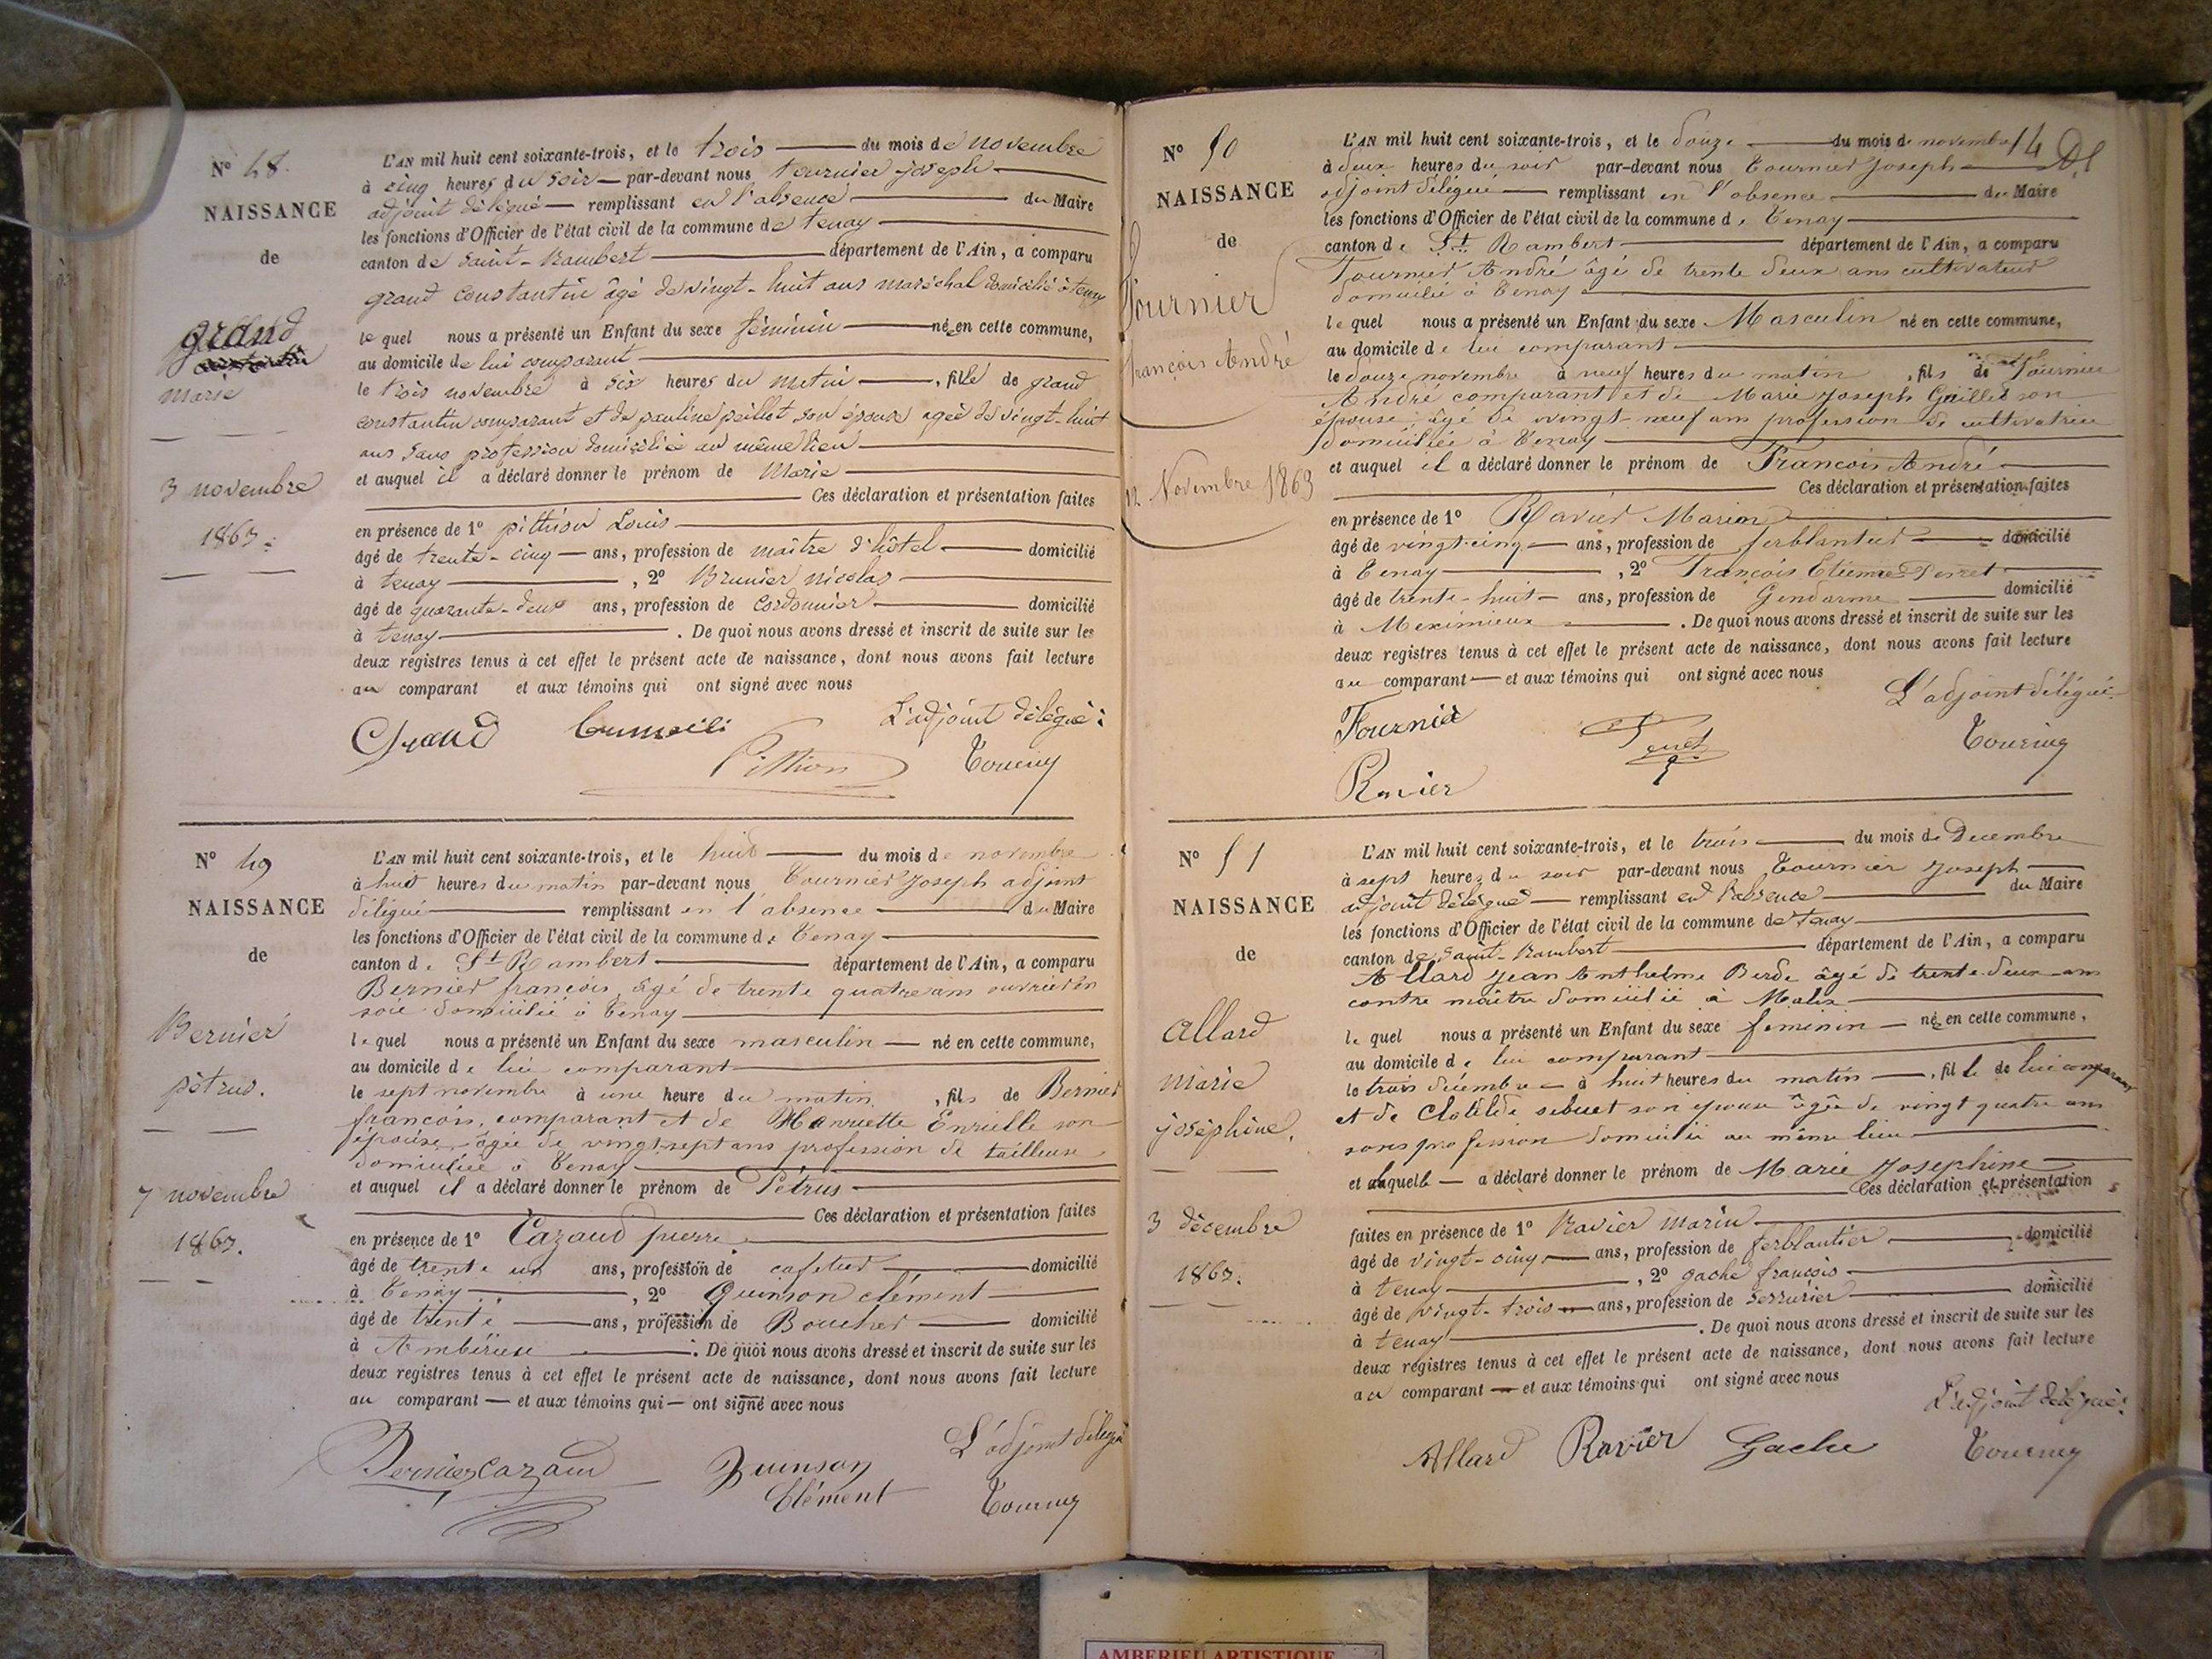 N° 48.
NAISSANCE
de
grand
marie
3 novembre
1863.
L'AN mil huit cent soixante-trois, et le trois du mois de novembre
à cinq heures du soir par-devant nous tournier joseph
adjoint délégué remplissant en l'absence du Maire
les fonctions d'Officier de l'état civil de la commune de tenay
canton de saint-Rambert département de l'Ain, a comparu
grand constantin âgé de vingt-huit ans maréchal domicilié à tenay
lequel nous a présenté un Enfant du sexe féminin née en cette commune,
au domicile de lui comparant
le trois novembre à six heures du matin, fille de grand
constantin comparant et de pauline peillot son épouse agée de vingt-huit
ans sans profession domiciliée au même lieu
et auquel il a déclaré donner le prénom de Marie
Ces déclaration et présentation faites
en présence de 1° pithion Louis
âgé de trente-cinq ans, profession de maître d'hôtel domicilié
à tenay, 2° Brunier nicolas
âgé de quarante-deux ans, profession de cordonnier domicilié
à tenay. De quoi nous avons dressé et inscrit de suite sur les
deux registres tenus à cet effet le présent acte de naissance, dont nous avons fait lecture
au comparant et aux témoins qui ont signé avec nous
L'adjoint délégué:
Grand
Pithion
N° 49
NAISSANCE
de
Bernier
pétrus.
7 novembre
1863.
L'AN mil huit cent soixante-trois, et le huit du mois de novembre
à huit heures du matin par-devant nous Tournier Joseph adjoint
délégué remplissant en l'absence du Maire
les fonctions d'Officier de l'état civil de la commune de Tenay
canton de St Rambert département de l'Ain, a comparu
Bernier françois, âgé de trente quatre ans ouvrier en
soie domicilié à Tenay
lequel nous a présenté un Enfant du sexe masculin né en cette commune,
au domicile de lui comparant
le sept novembre à une heure du matin, fils de Bernier
françois, comparant et de Henriette son
épouse âgée de vingt sept ans profession de tailleuse
domiciliée à Tenay
et auquel il a déclaré donner le prénom de Pétrus
Ces déclaration et présentation faites
en présence de 1° Cazaud pierre
âgé de trente un ans, profession de cafetier domicilié
à Tenay, 2° Quinson clément
âgé de trente ans, profession de Boucher domicilié
à Ambérieu. De quoi nous avons dressé et inscrit de suite sur les
deux registres tenus à cet effet le présent acte de naissance, dont nous avons fait lecture
au comparant et aux témoins qui ont signé avec nous
L'adjoint délégué
Bernier Cazaud Quinson
Clément
14
N° 50
NAISSANCE
de
Fournier
François André
12 Novembre 1863
L'AN mil huit cent soixante-trois, et le douze du mois de novembre
à deux heures du soir par-devant nous Tournier Joseph
adjoint délégué remplissant en l'absence du Maire
les fonctions d'Officier de l'état civil de la commune de Tenay
canton de St Rambert département de l'Ain, a comparu
Fournier André âgé de trente deux ans cultivateur
domicilié à Tenay
lequel nous a présenté un Enfant du sexe Masculin né en cette commune,
au domicile de lui comparant
le douze novembre à neuf heures du matin, fils de Fournier
André comparant et de Marie Joseph son
épouse âgé de vingt-neuf ans profession de cultivatrice
domiciliée à Tenay
et auquel il a déclaré donner le prénom de François André
Ces déclaration et présentation faites
en présence de 1° Ravier Marin
âgé de vingt-cinq ans, profession de ferblantier domicilié
à Tenay, 2° François Etienne Perret
âgé de trente-huit ans, profession de Gendarme domicilié
à Meximieux. De quoi nous avons dressé et inscrit de suite sur les
deux registres tenus à cet effet le présent acte de naissance, dont nous avons fait lecture
au comparant et aux témoins qui ont signé avec nous
L'adjoint délégué
Fournier
Ravier
N° 51
NAISSANCE
de
Allard
Marie
joséphine.
3 décembre
1863.
L'AN mil huit cent soixante-trois, et le trois du mois de Decembre
à sept heures du soir par-devant nous Tournier Joseph
adjoint délégué remplissant en l'absence du Maire
les fonctions d'Officier de l'état civil de la commune de tenay
canton de saint-Rambert département de l'Ain, a comparu
Allard Jean Anthelme âgé de trente-deux ans
contre maître domicilié à Malix
lequel nous a présenté un Enfant du sexe feminin née en cette commune,
au domicile de lui comparant
le trois décembre à huit heures du matin, fille de lui comparant
et de Clotilde son épouse âgée de vingt quatre ans
sans profession domiciliée au même lieu
et auquelle a déclaré donner le prénom de Marie Josephine
Ces déclaration et présentation
faites en présence de 1° Ravier marin
âgé de vingt-cinq ans, profession de ferblantier domicilié
à tenay, 2° gache françois
âgé de vingt-trois ans, profession de serrurier domicilié
à tenay. De quoi nous avons dressé et inscrit de suite sur les
deux registres tenus à cet effet le présent acte de naissance, dont nous avons fait lecture
au comparant et aux témoins qui ont signé avec nous
L'adjoint délégué:
Allard Ravier Gache
AMBERIEU ARTISTIQUE